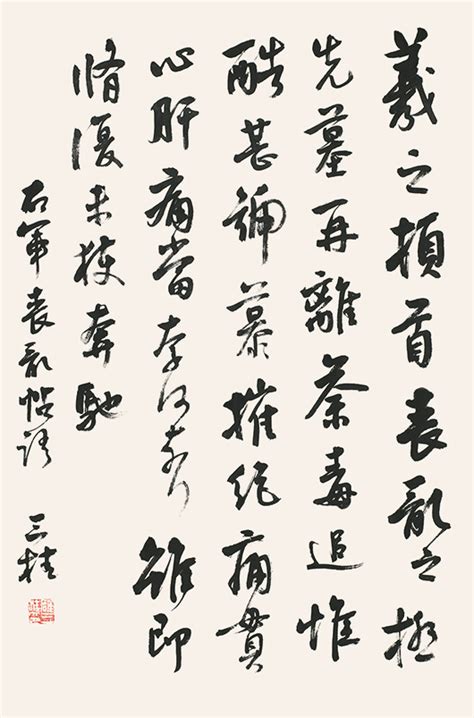 羲之頓首喪亂之極
先墓再離荼毒追惟
酷甚號慕摧絕痛貫
心肝痛當奈何奈何雖即
脩復未獲奔馳
右軍喪亂帖語 三桂